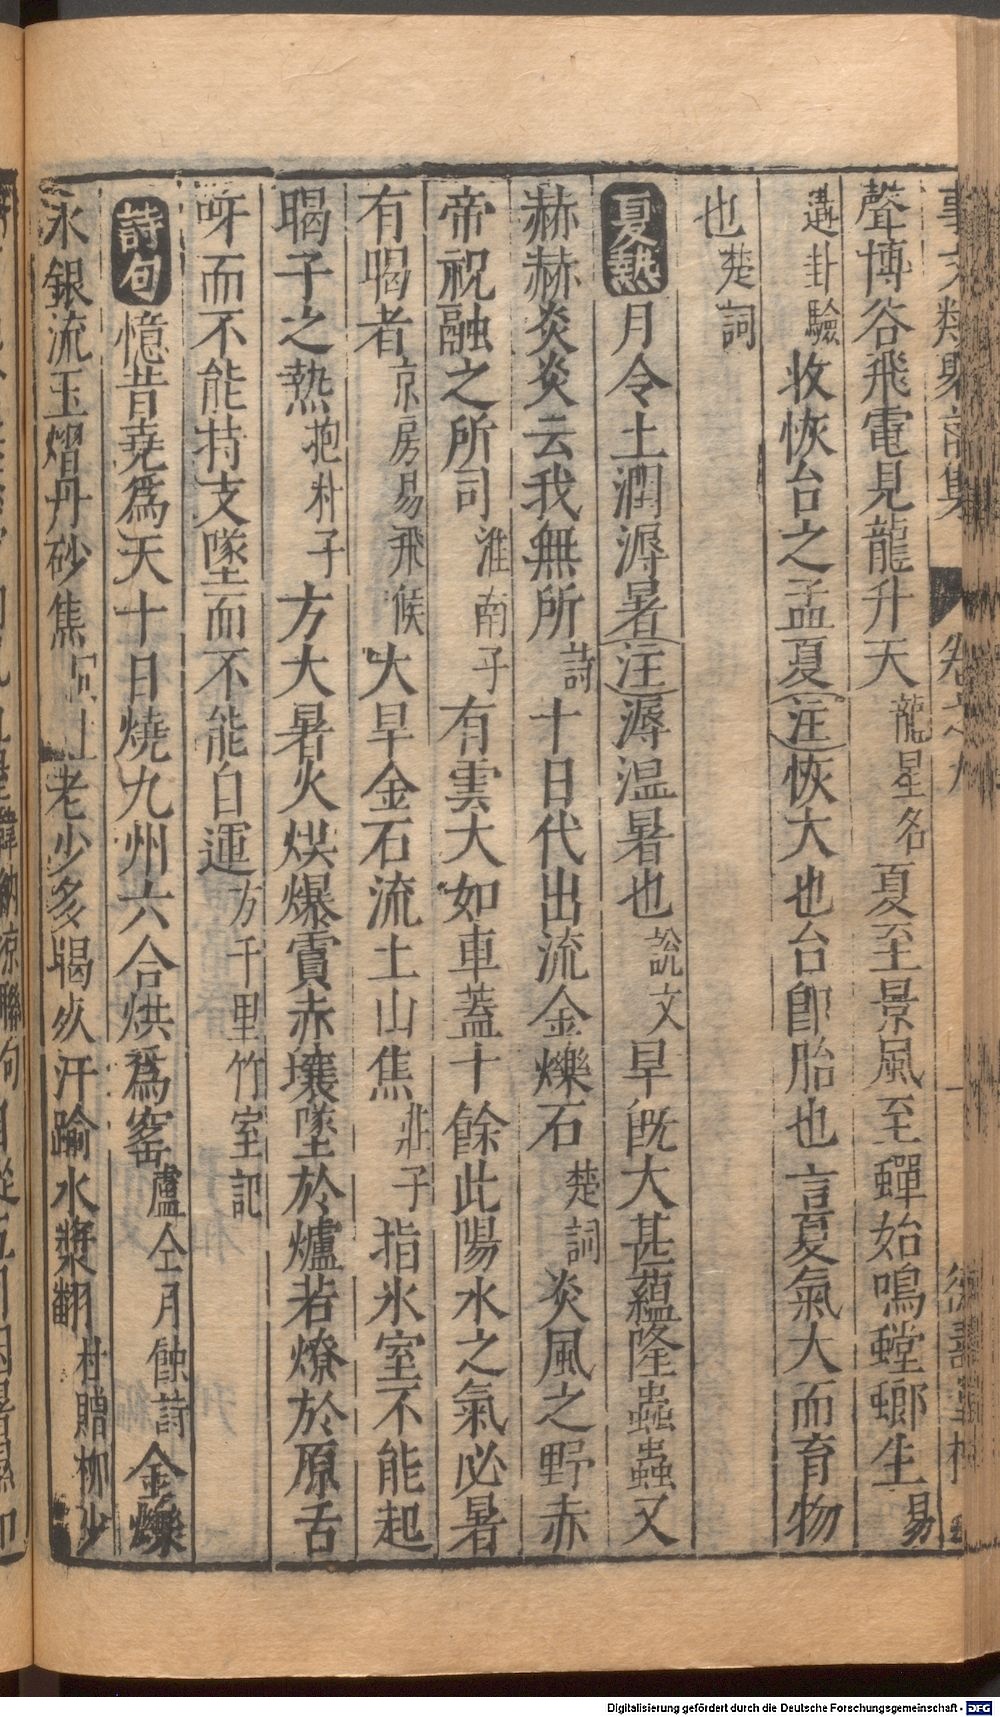 事文類聚前集 卷之九
聲博谷飛電見龍升天龍星名夏至景風至蟬始鳴螳螂生易
遘卦驗收恢台之孟夏注恢大也台卽胎也言夏氣大而育物
也楚詞
夏熱月令土潤溽暑注溽温暑也說文旱旣大甚蘊隆蟲蟲又
赫赫炎炎云我無所詩十日代出流金爍石楚詞炎風之野赤
帝祝融之所司淮南子有雲大如車蓋十餘此陽水之氣必暑
有暍者京房易飛候大旱金石流土山焦莊子指氷室不能起
暍子之熱抱朴子方大暑火烘爆賣赤壤墜於爐若燎於原舌
呀而不能持支墜而不能自運方千里竹室記
詩句憶昔堯爲天十日燒九州六合烘爲窰盧仝月蝕詩金爍
水銀流玉熠丹砂焦老少多暍死汗踰水漿翻杜贈柳少
Digitalisierung gefördert durch die Deutsche Forschungsgemeinschaft - DFG